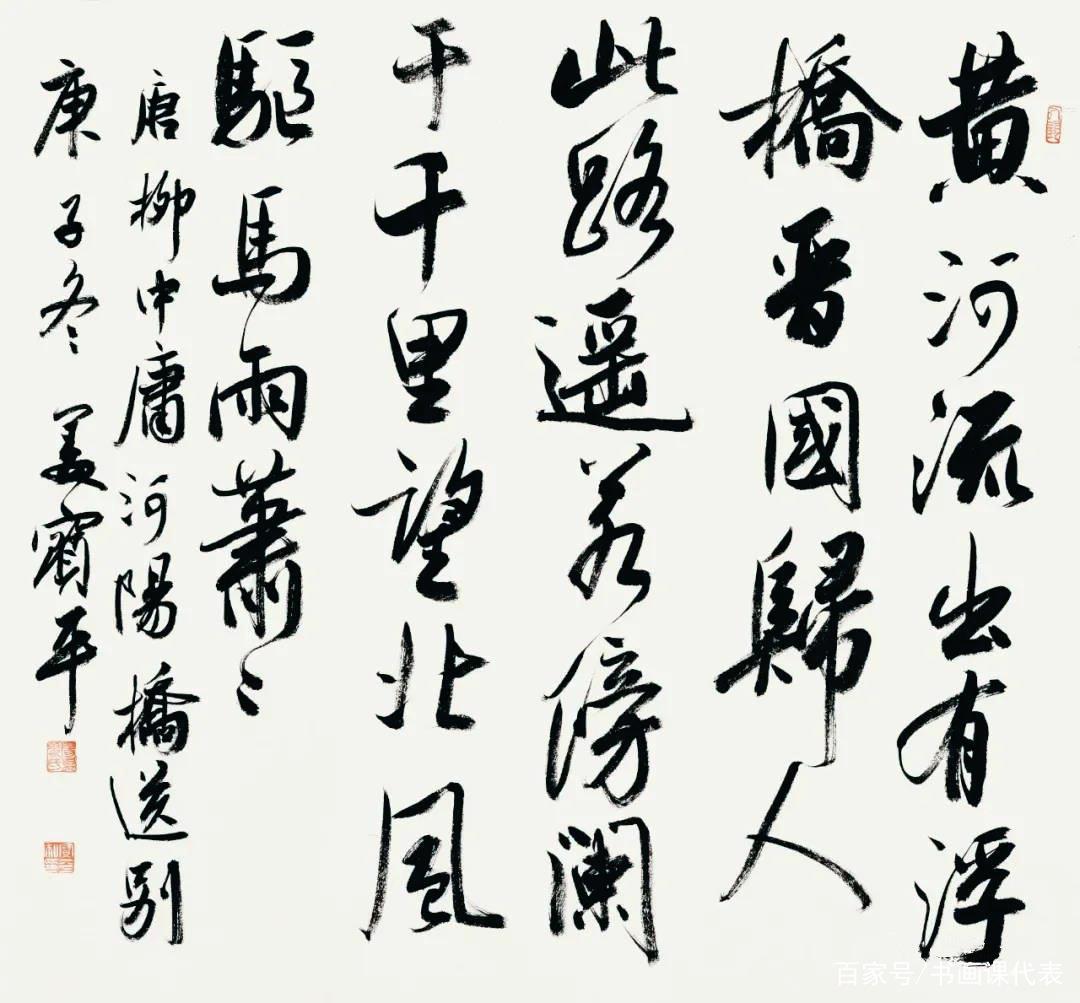 黄河流出有浮
橋晋國歸人
此路遥若傍瀾
干千里望北風
驅馬雨蕭〻
唐柳中庸河陽橋送别
庚子冬 平
百家号/书画课代表